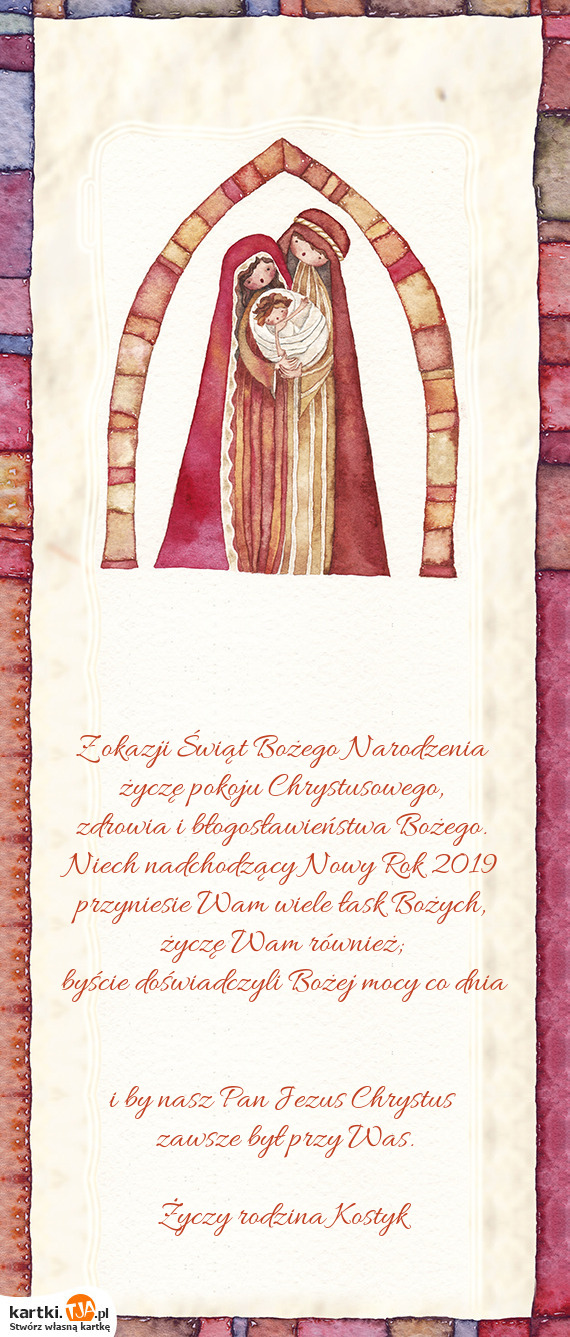 Z okazji Świąt Bożego Narodzenia
życzę pokoju Chrystusowego,
zdrowia i błogosławieństwa Bożego.
Niech nadchodzący Nowy Rok 2019
przyniesie Wam wiele łask Bożych,
życzę Wam również;
byście doświadczyli Bożej mocy co dnia
i by nasz Pan Jezus Chrystus
zawsze był przy Was.
Życzy rodzina Kostyk
kartki.TJA.pl
Stwórz własną kartkę